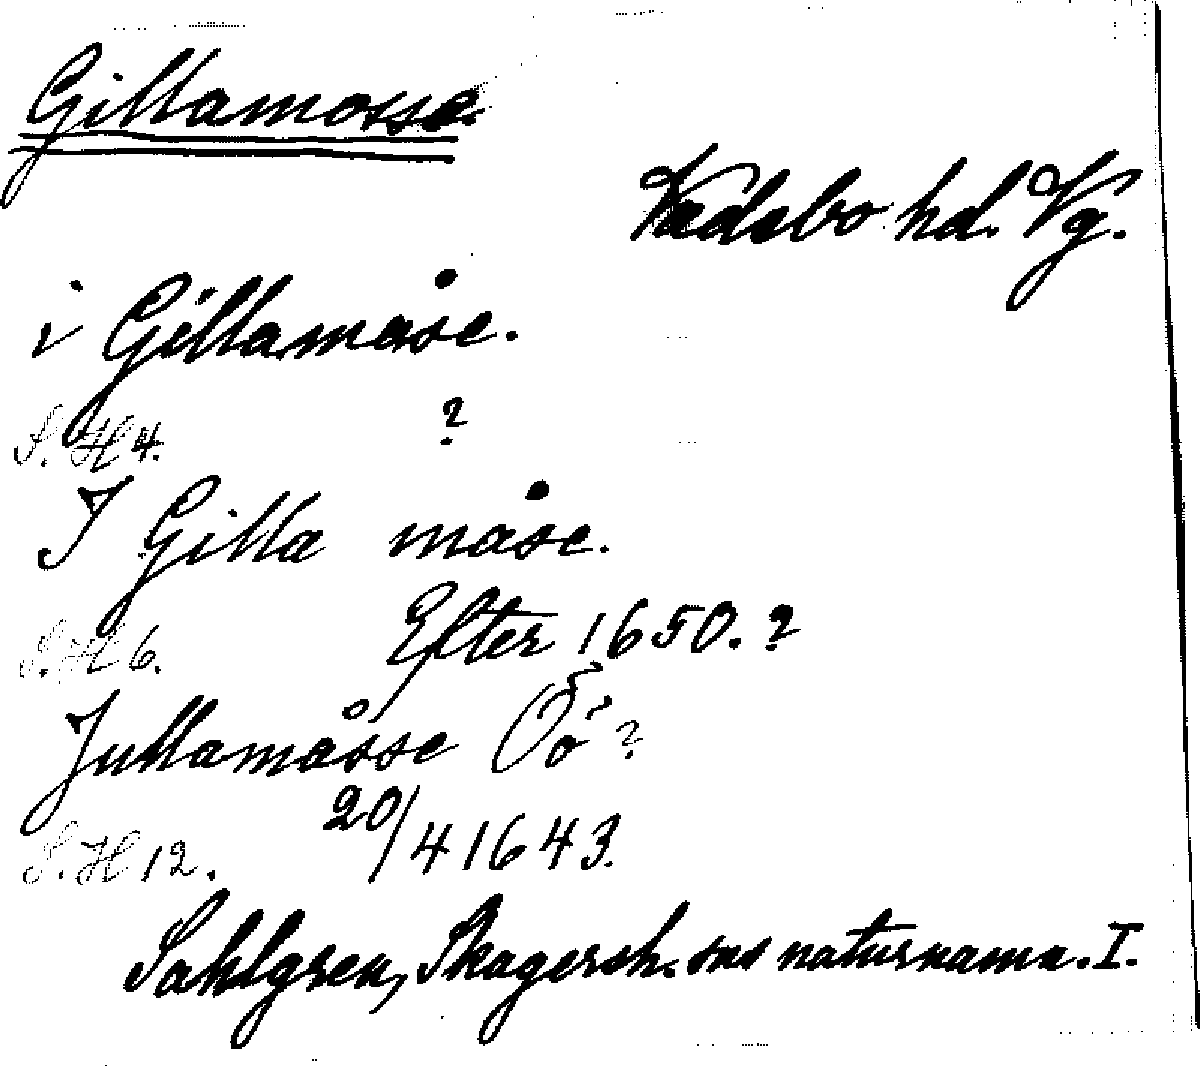 Gillamosse.
Vadsbo hd. Vg.
i Gillamåse.
S. H 4. ?
I Gilla måse.
S. H 6. Efter 1650. ?
Jullamåsse
S. H 12. 20/4 1643.
Sahlgren, Skagersh. sns naturnamn. I.